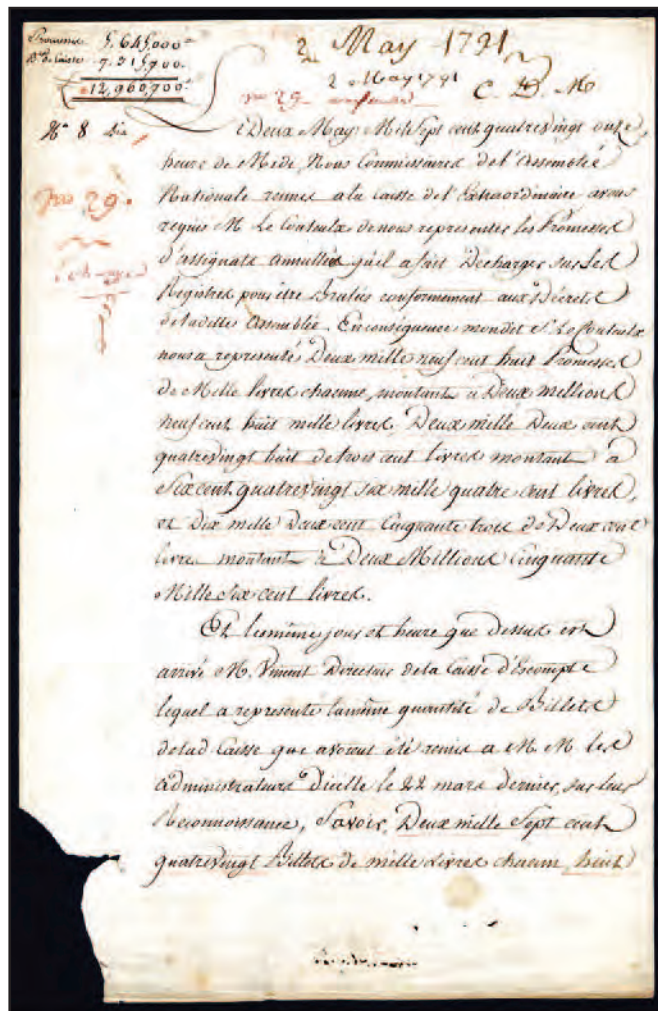 Promesses 5,645,000
Bts de Caisse 7,315,900.
12,960,900
2 May 1791
2 May 1791
C. D. M
No 29
No 8 bis
No 29.
Deux May Mil Sept cent quatrevingt onze,
heure de Midi, Nous Commissaires de l'Assemblée
Nationale réunis a la Caisse de l'Extraordinaire avons
requis M. Le Couteulx de nous representer les Promesses
d'assignats annullées qu'il a fait Decharger sur les
Registres pour être Brulées conformément aux Décrets
de ladite Assemblée. En conséquence mondit S. Le Couteulx
nous a representé Deux mille neuf cent huit Promesses
de Mille livres chacune, montant à Deux millions
neuf cent huit mille livres, Deux mille Deux cent
quatrevingt huit de trois cent livres montant à
Six cent quatrevingt six mille quatre cent livres,
et Dix mille Deux cent Cinquante trois de Deux cent
livres montant à Deux Millions Cinquante
Mille Six cent livres.
Et le même jour et heure que dessus est
arrivé M. Vincent Directeur de la Caisse d'Escompte
lequel a representé la même quantité de Billets
de lad. Caisse que avoient été remis a M. M. les
administrateurs d'icelle le 22 mars dernier, sur leur
Reconnoissance, Savoir, Deux mille Sept cent
quatrevingt Billets de mille Livres chacun, huit